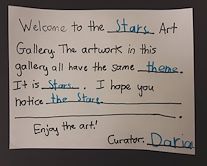 Welcome to the Stars Art
Gallery. The artwork in this
gallery all have the same theme.
It is Stars. I hope you
notice the Stars.
Enjoy the art!
Curator, Daria